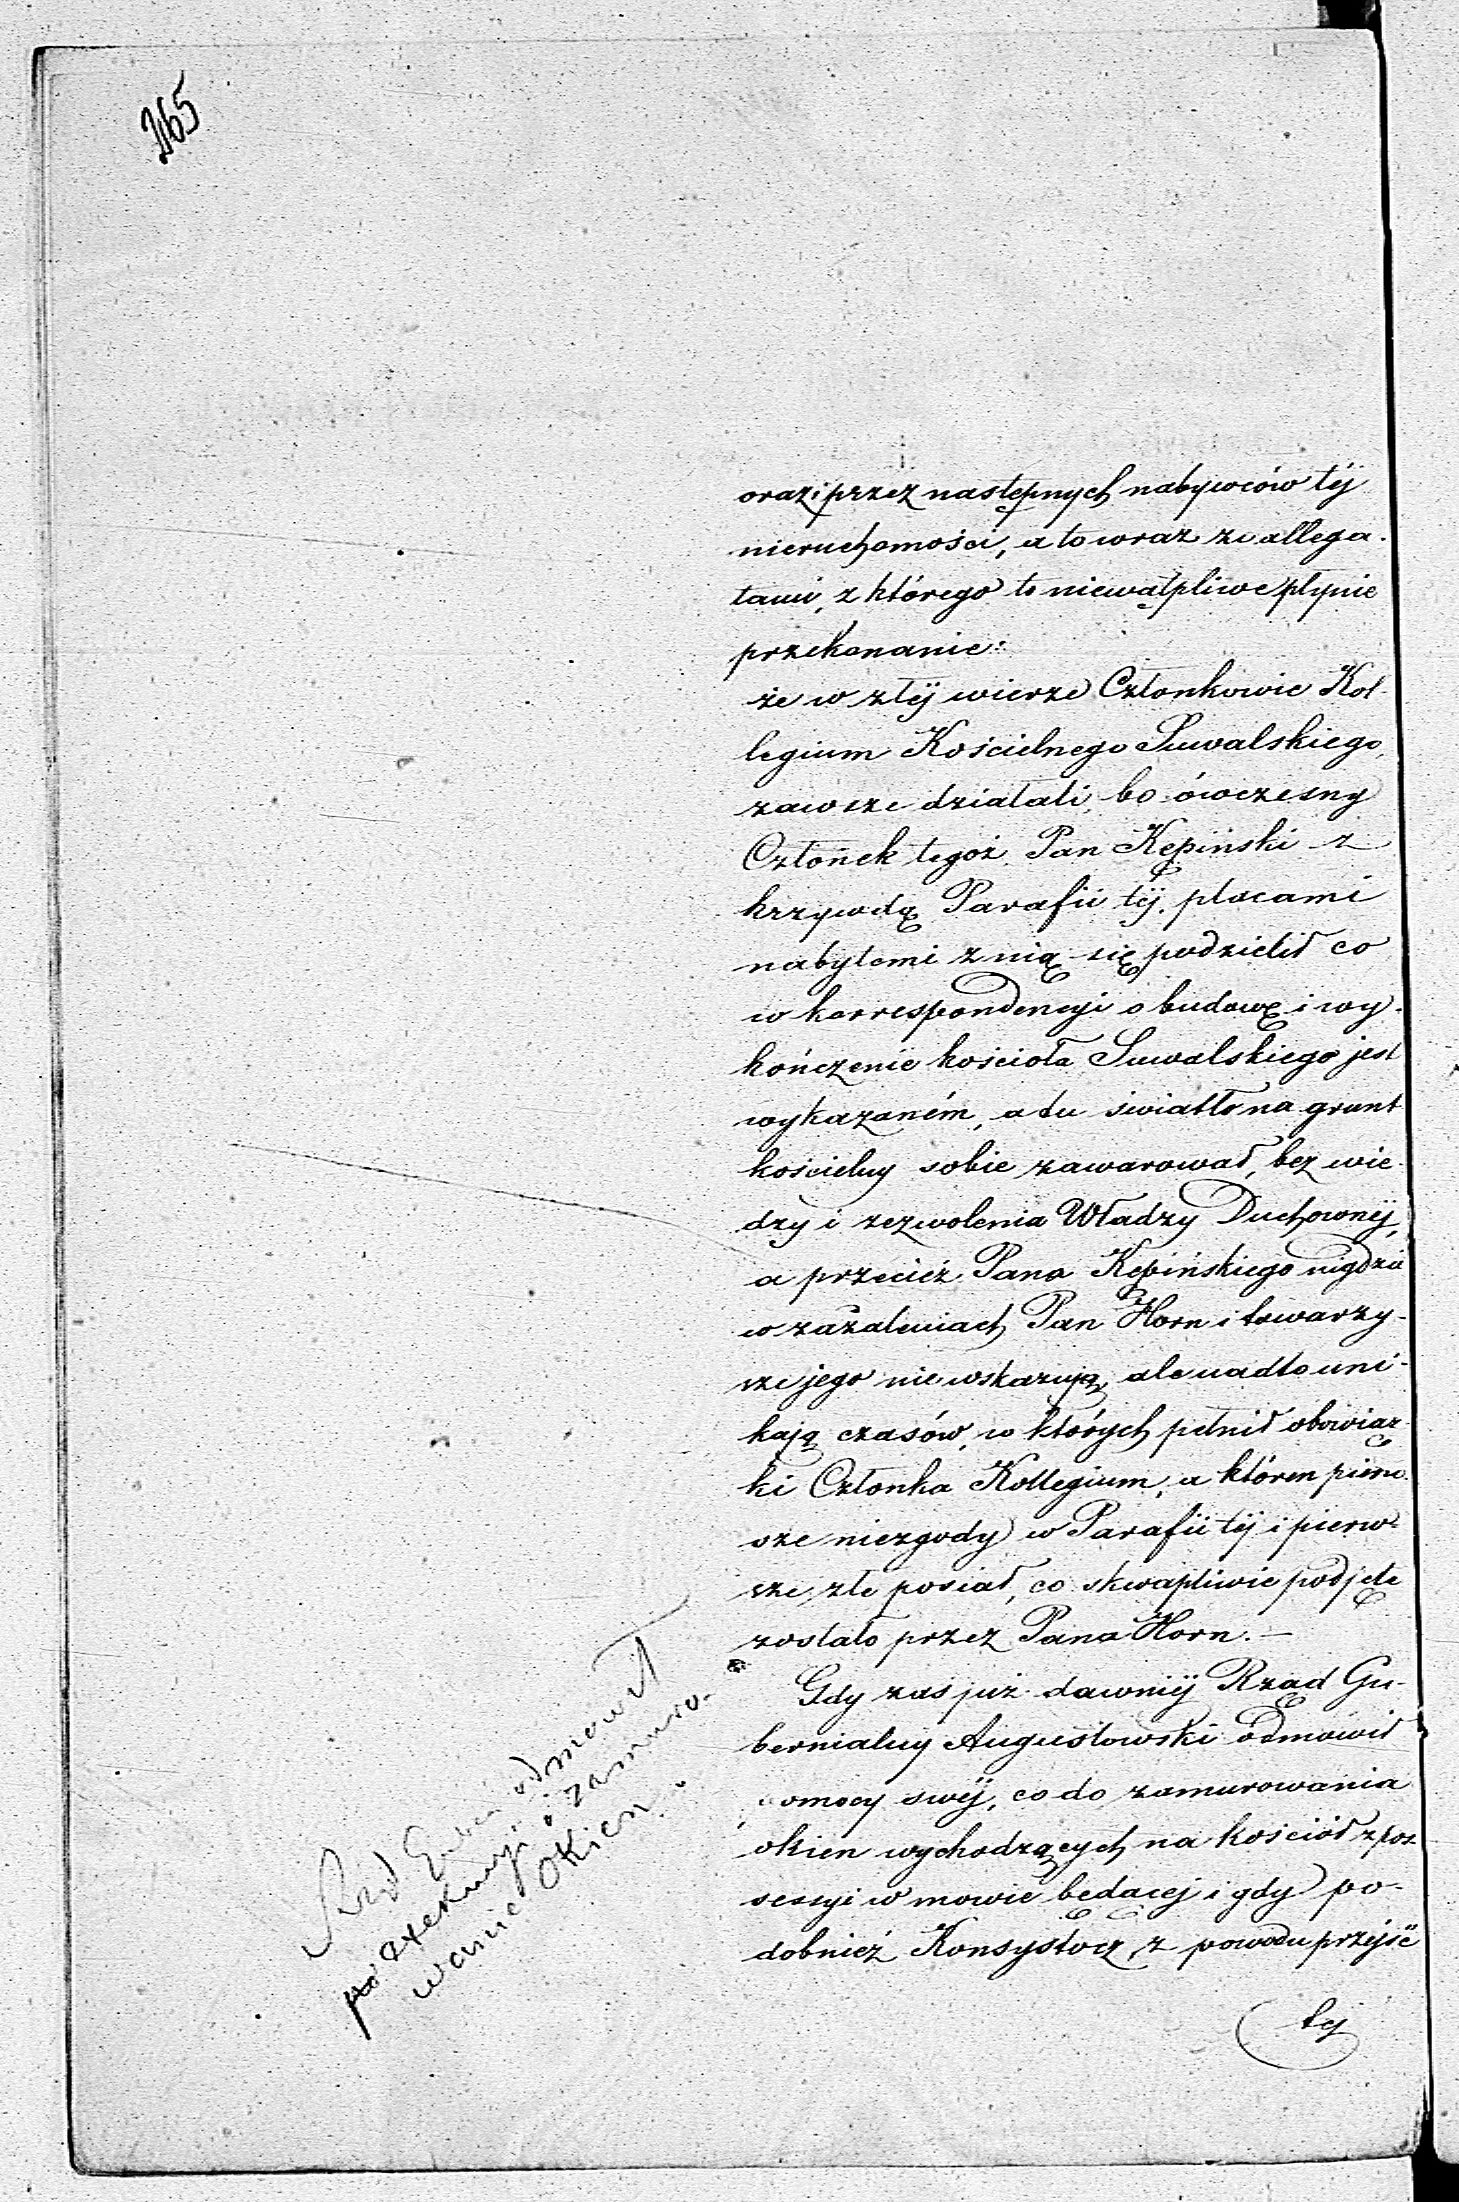 265
oraz i przez następnych nabywców téj
nieruchomości, a to wraz ze allega-
tami, z którego to niewątpliwe płynie
przekonanie:
że w złéj wierze Członkowie Kol-
legium Kościelnego Suwalskiego,
zawsze działali, bo ówczesny
Członek tegoż Pan Kępiński z
krzywdą Parafii téj placami
nabytemi z nią się podzielił co
w korrespondencyi o budowę i wy-
kończenie kościoła Suwalskiego jest
wykazaném, a tu światło na grunt
kościelny sobie zawarował, bez wie-
dzy i zezwolenia Władzy Duchownéj,
a przecież Pana Kępińskiego nigdzie
w zażaleniach Pan Horn i towarzy-
sze jego nie wskazują, ale nadto uni-
kają czasów, w których pełnił obowiąz-
ki Członka Kollegium, a któren pierw-
sze niezgody w Parafii téj i pierw-
sze złe posiał, co skwapliwie podjęte
zostało przez Pana Horn. —
Gdy zaś już dawniéj Rząd Gu-
bernialny Augustowski odmówił
pomocy swéj, co do zamurowania
okien wychodzących na kościół z pos-
sessyi w mowie będącej i gdy po-
dobnież Konsystorz z powodu przejść
téj
Rząd Guber odmówił
exekucyi o zamuro-
wanie okien.